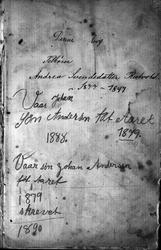 Denne Bog
tilhører
Andrea Svendsdatter
1877 - 1897
Vaar Johan
Jon Andersen født aaret
1888. 1879.
Vaar søn Johan Andersen
født aaret
1879
skrevet
1890